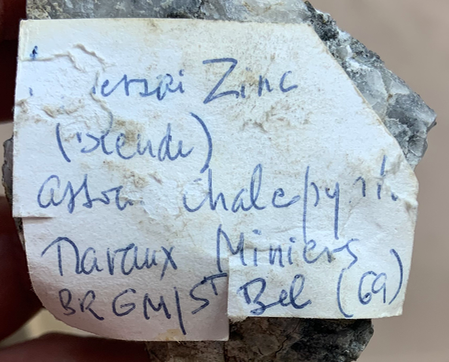 Zinc
(Blende)
Assoc chalcopyrit
Travaux Miniers
BRGM/ST Bel (69)